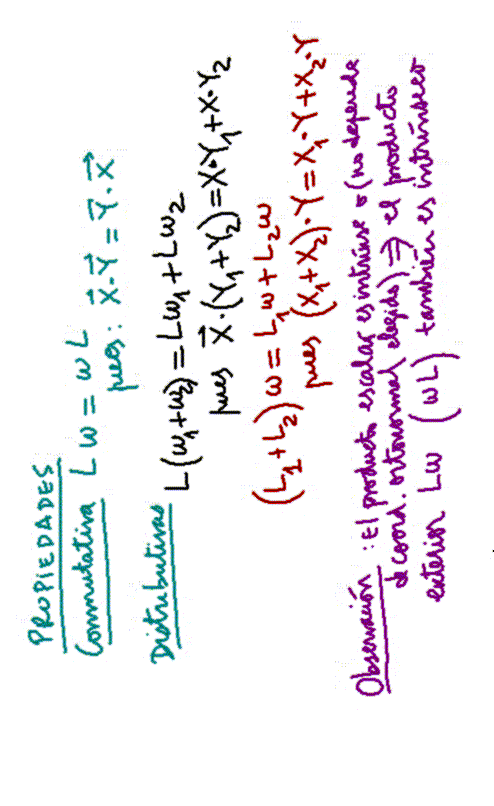 PROPIEDADES
Conmutativa L ω = ω L
pues: X⃗·Y⃗ = Y⃗·X⃗
Distributivas L(ω₁+ω₂) = Lω₁ + Lω₂
pues X⃗·(Y₁+Y₂) = X·Y₁ + X·Y₂
(L₁+L₂) ω = L₁ω + L₂ω
pues (X₁+X₂)·Y = X₁·Y + X₂·Y
Observación: El producto escalar es intrínseco (no depende
de coord. ortonormal elegido) ⇒ el producto
exterior Lω (ωL) también es intrínseco